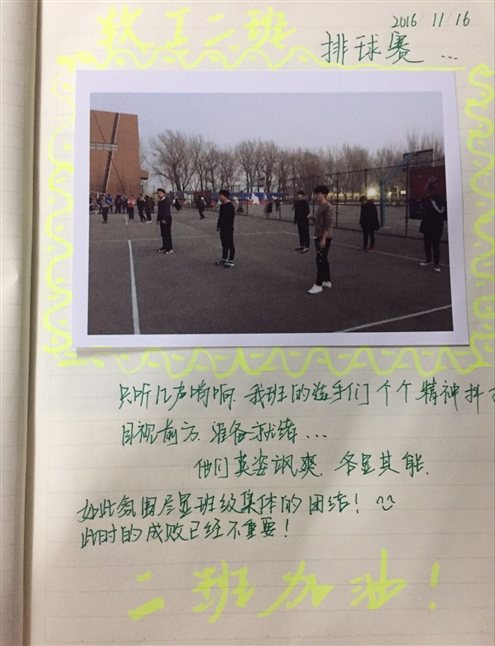 软工二班
2016 11/16
排球赛...
只听几声哨响,我班的选手们个个精神抖
目视前方,准备就绪...
他们英姿飒爽,各显其能.
如此氛围尽显班级集体的团结!
此时的成败已经不重要!
二班加油!